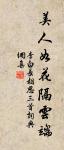 美人如花隔雲端
李白長相思三首詞典
網集